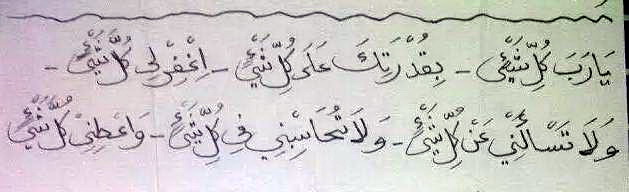 يَارَبَ كُلِّ شَيْءٍ - بِقُدْرَتِكَ عَلَى كُلِّ شَيْءٍ - اِغْفِرْلِى كُلَّ شَيْءٍ -
وَلَا تَسْأَلْنِي عَنْ كُلِّ شَيْءٍ - وَلَا تُحَاسِبْنِي فِي كُلِّ شَيْءٍ - وَاعْطِنِىْ كُلَّ شَيْءٍ